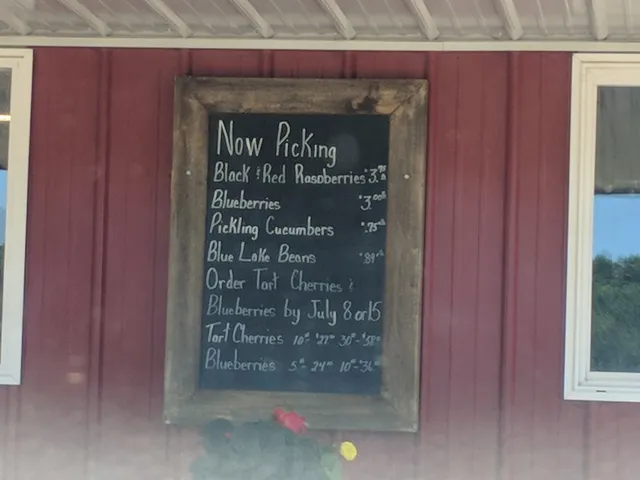 Now Picking
Black & Red Raspberries $3.
Blueberries $3.00
Pickling Cucumbers $.75
Blue Lake Beans $.89
Order Tart Cherries &
Blueberries by July 8 or 15
Tart Cherries 10# $27 30#
Blueberries 5# 10#